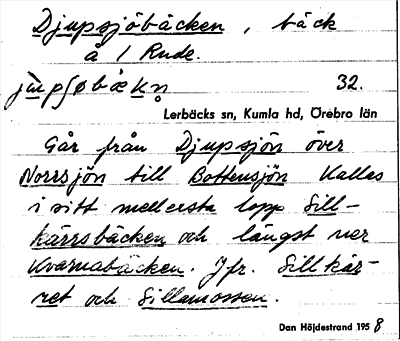 Djupsjöbäcken, bäck
å / Rude.
jùpʃøbækn̥ 32.
Lerbäcks sn, Kumla hd, Örebro län
Går från Djupsjön över
Norrsjön till Bottensjön Kallas
i sitt mellersta lopp Sill-
kärrsbäcken och längst ner
Kvarnabäcken. Jfr. Sillkär-
ret och Sillamossen.
Dan Höjdestrand 1958